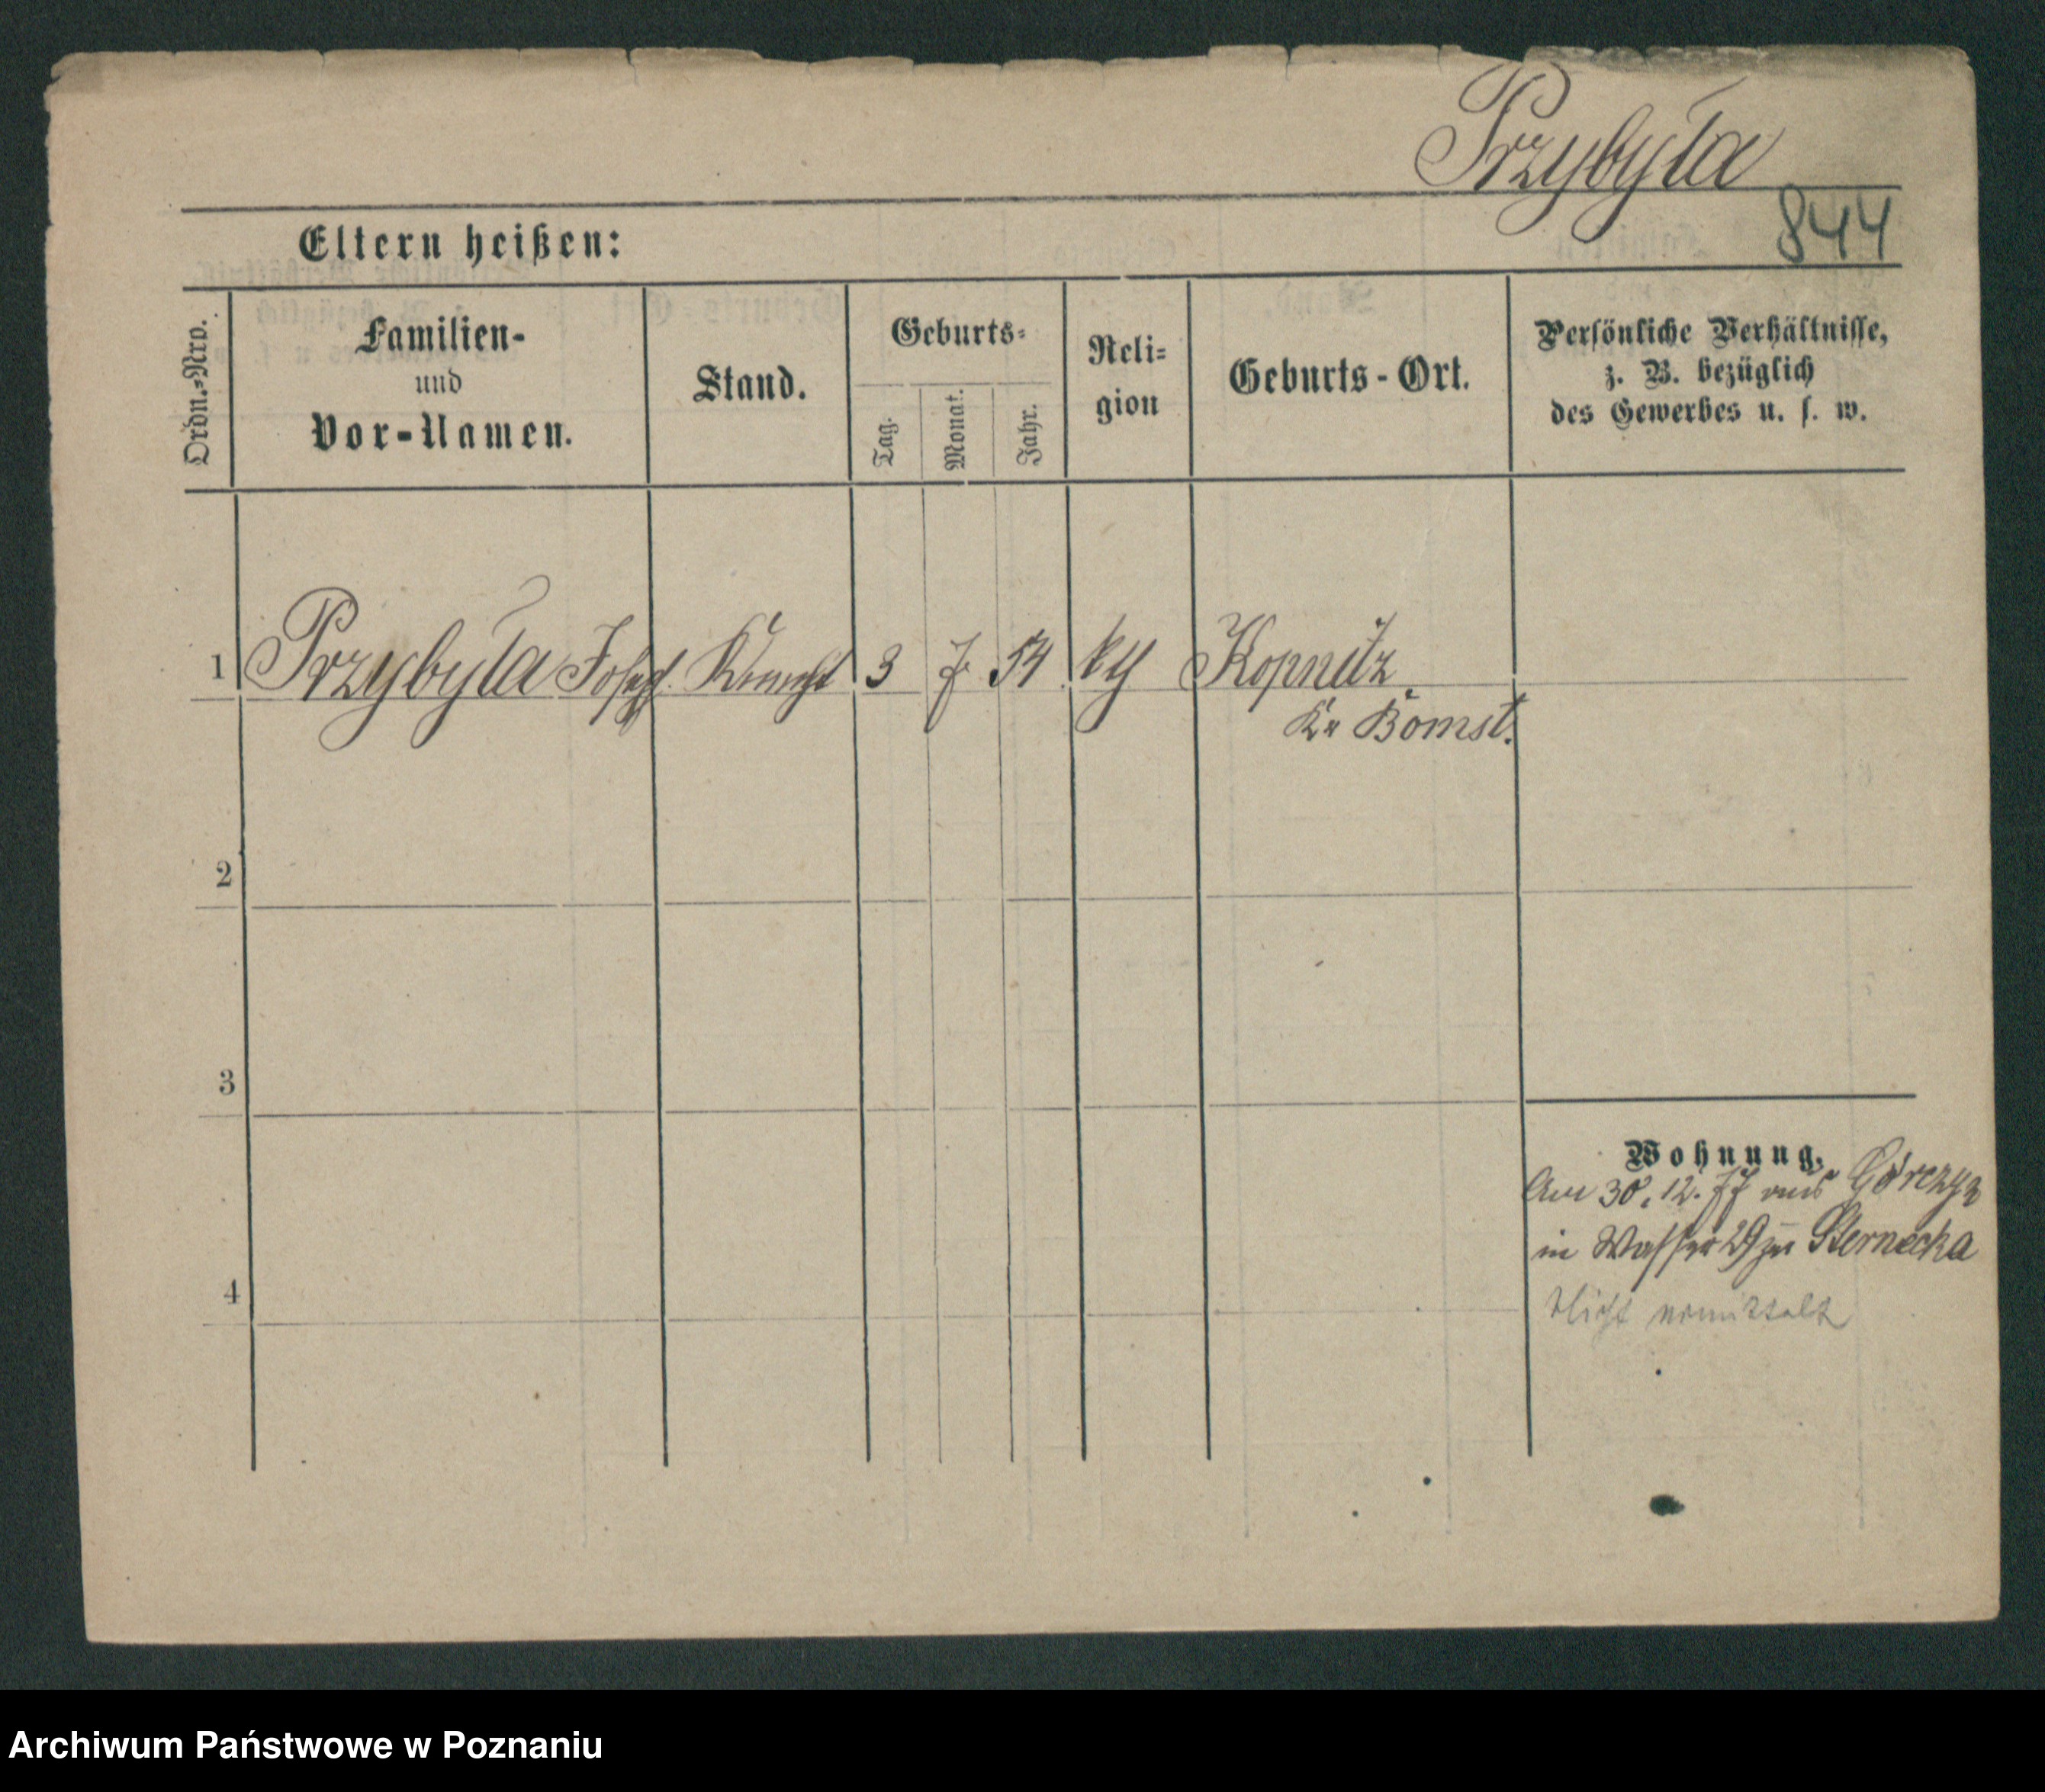 Przybyła
844
Eltern heißen:
Ordn.-Nro.
Familien-
und
Vor-Namen.
Stand.
Geburts-
Tag.
Monat.
Jahr.
Reli-
gion
Geburts-Ort.
Persönliche Verhältnisse,
z. B. bezüglich
des Gewerbes u. s. w.
1 Przybyła Joseph Knecht 3 7 54 kth Kopnitz
Kr Bomst.
2
3
4
Wohnung.
Am 30. 12. 77 aus Górczyn
in Wasser 29 zu Sternecka
Nicht ermittelt
Archiwum Państwowe w Poznaniu